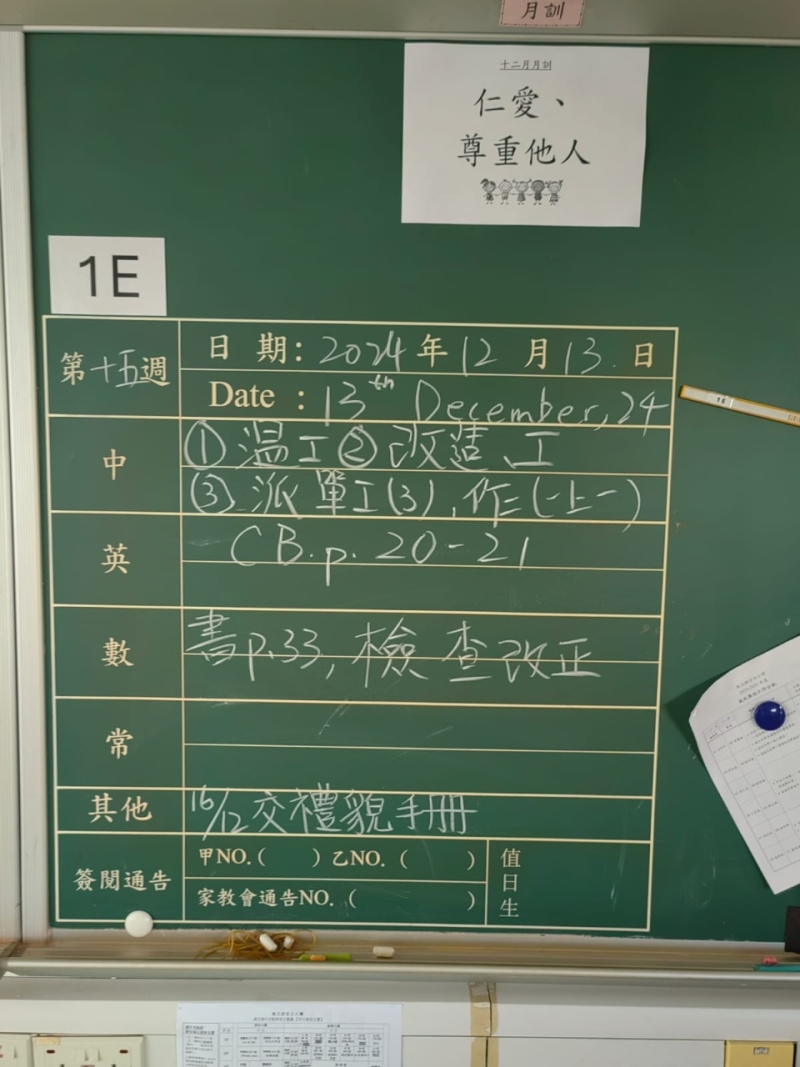 月訓
十二月月訓
仁愛、
尊重他人
1E
第十五週
日 期：2024年12月13日
Date : 13th December, 24
中
①温工②改造工
③派單工(3),作(一上一)
英
CB.p. 20-21
數
書p.33,檢查改正
常
其他
16/12交禮貌手册
簽閱通告
甲NO.( ) 乙NO. ( )
家教會通告NO.( )
值日生